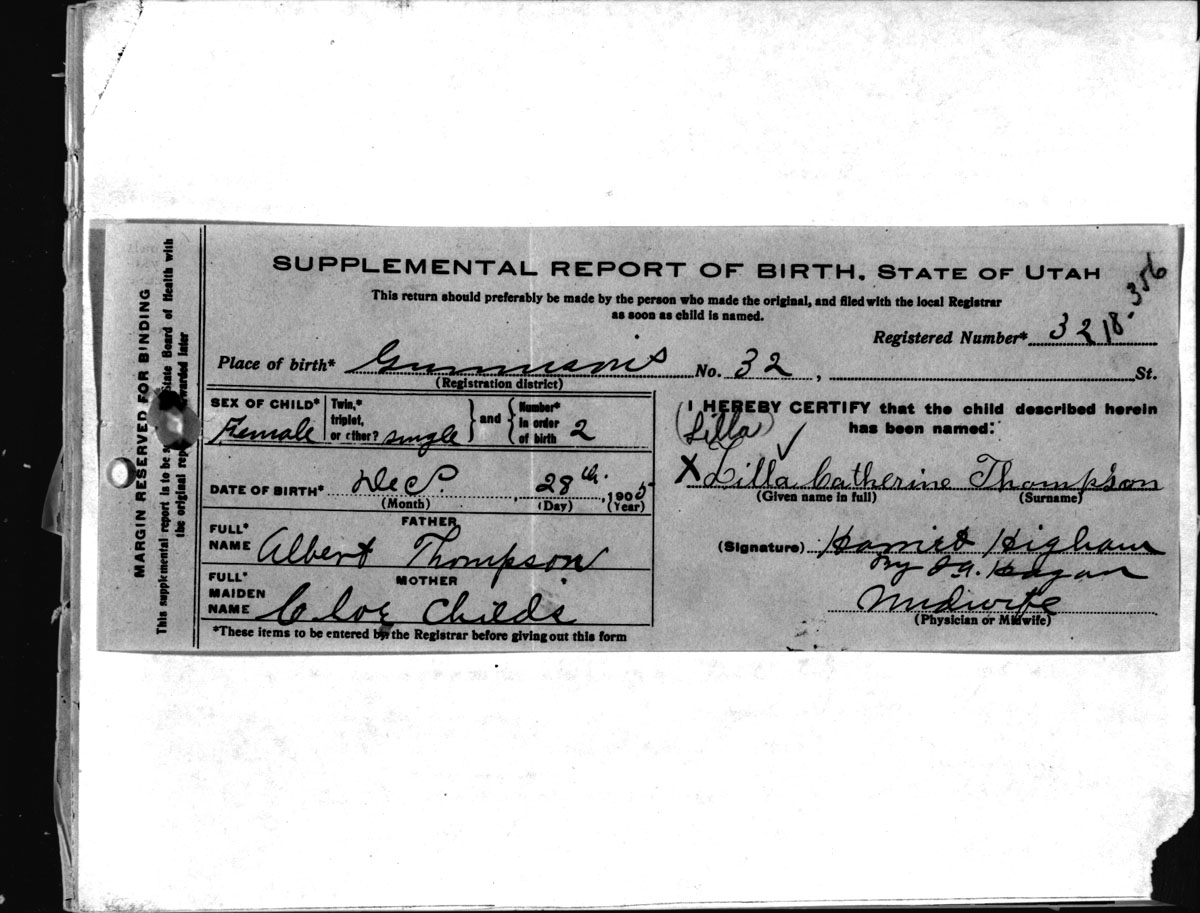 SUPPLEMENTAL REPORT OF BIRTH. STATE OF UTAH
This return should preferably be made by the person who made the original, and filed with the local Registrar
as soon as child is named.
Registered Number* 3218-356
Place of birth* Gunnison No. 32, St.
(Registration district)
SEX OF CHILD* Female
Twin,* triplet, or other? single } and { Number* in order of birth 2
DATE OF BIRTH* Dec. 28th, 1905
(Month) (Day) (Year)
FATHER
FULL* NAME Albert Thompson
MOTHER
FULL* MAIDEN NAME Cloe Childs
*These items to be entered by the Registrar before giving out this form
I HEREBY CERTIFY that the child described herein
(Lilla) has been named:
X Lilla Catherine Thompson
(Given name in full) (Surname)
(Signature) Harriet Higham
by Hagan
Midwife
(Physician or Midwife)
MARGIN RESERVED FOR BINDING
This supplemental report is to be State Board of Health with
the original later